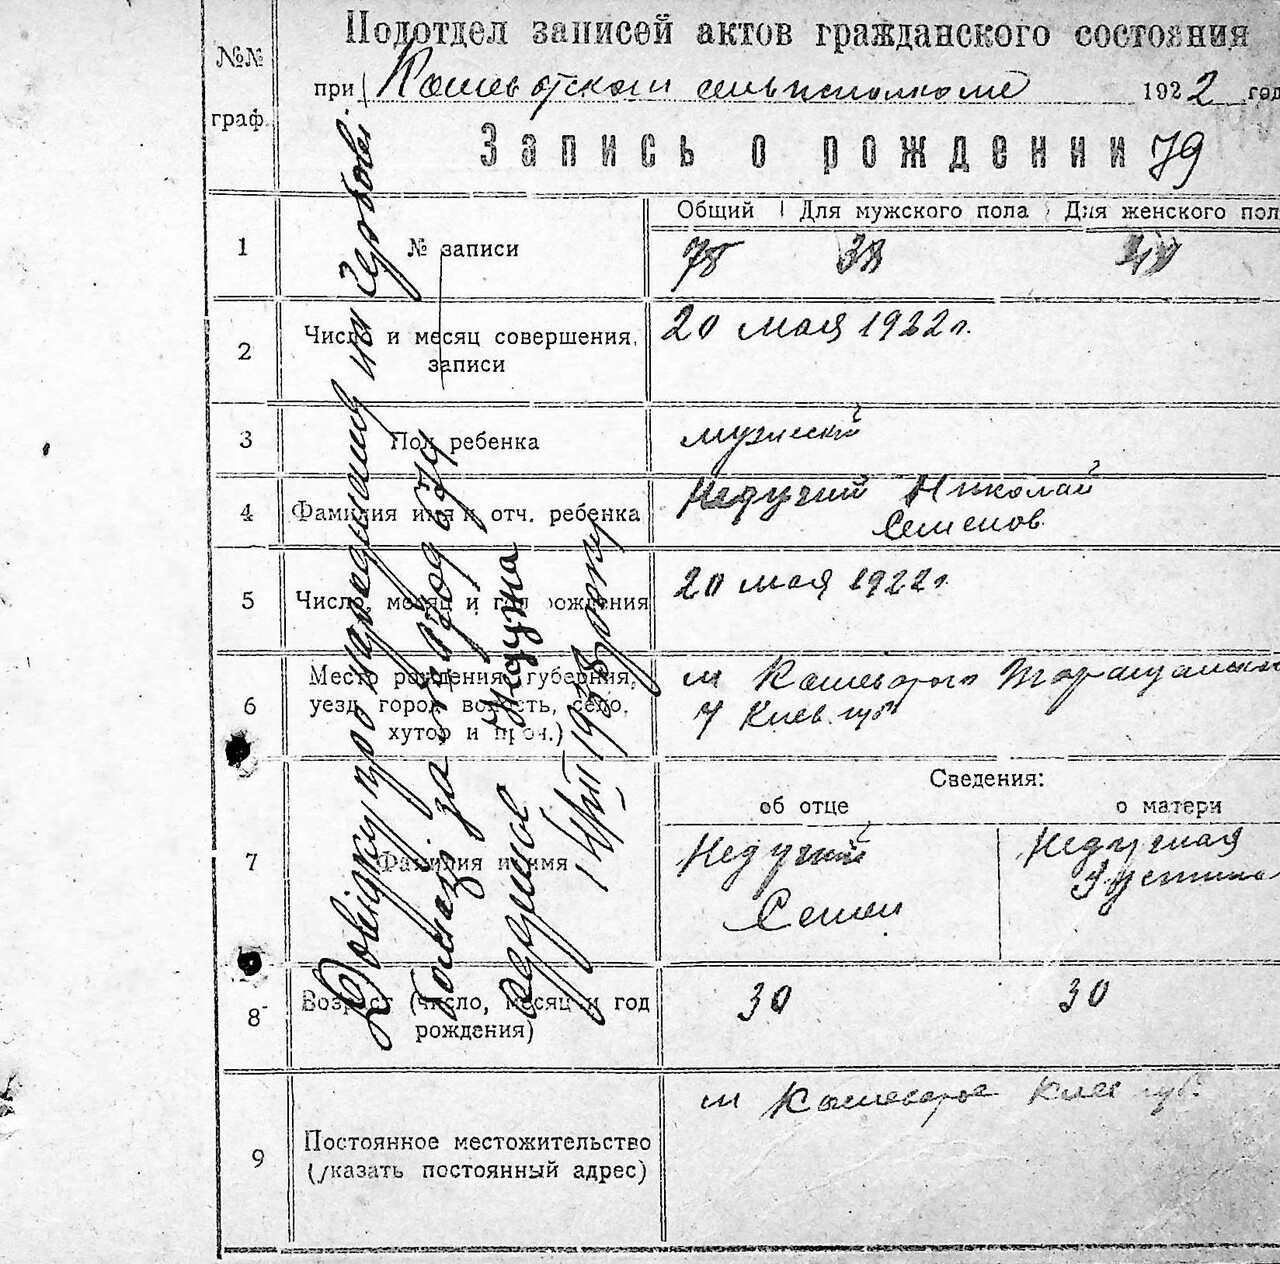 Подотдел записей актов гражданского состояния
№№ граф.
при Кошеватском сельисполкоме 1922 год
Запись о рождении 79
Общий Для мужского пола Для женского пол
1 № записи
78 38
2 Число и месяц совершения записи
20 мая 1922 г.
3 Пол ребенка
мужеский
4 Фамилия имя и отч. ребенка
Недужий Николай
Семенов.
5 Число, месяц и год рождения
20 мая 1922 г.
6 Место рождения (губерния,
уезд, город, волость, село,
хутор и проч.)
м Кошеватого Таращанского
у Киев. губ
Сведения:
об отце о матери
7 Фамилия и имя
Недужий
Семен
Недужая
Устина
8 Возраст (число, месяц и год
рождения)
30 30
9 Постоянное местожительство
(указать постоянный адрес)
м Кошеватое Киев губ.
Довідку про народження на гербові
за
Недужа
1938 року